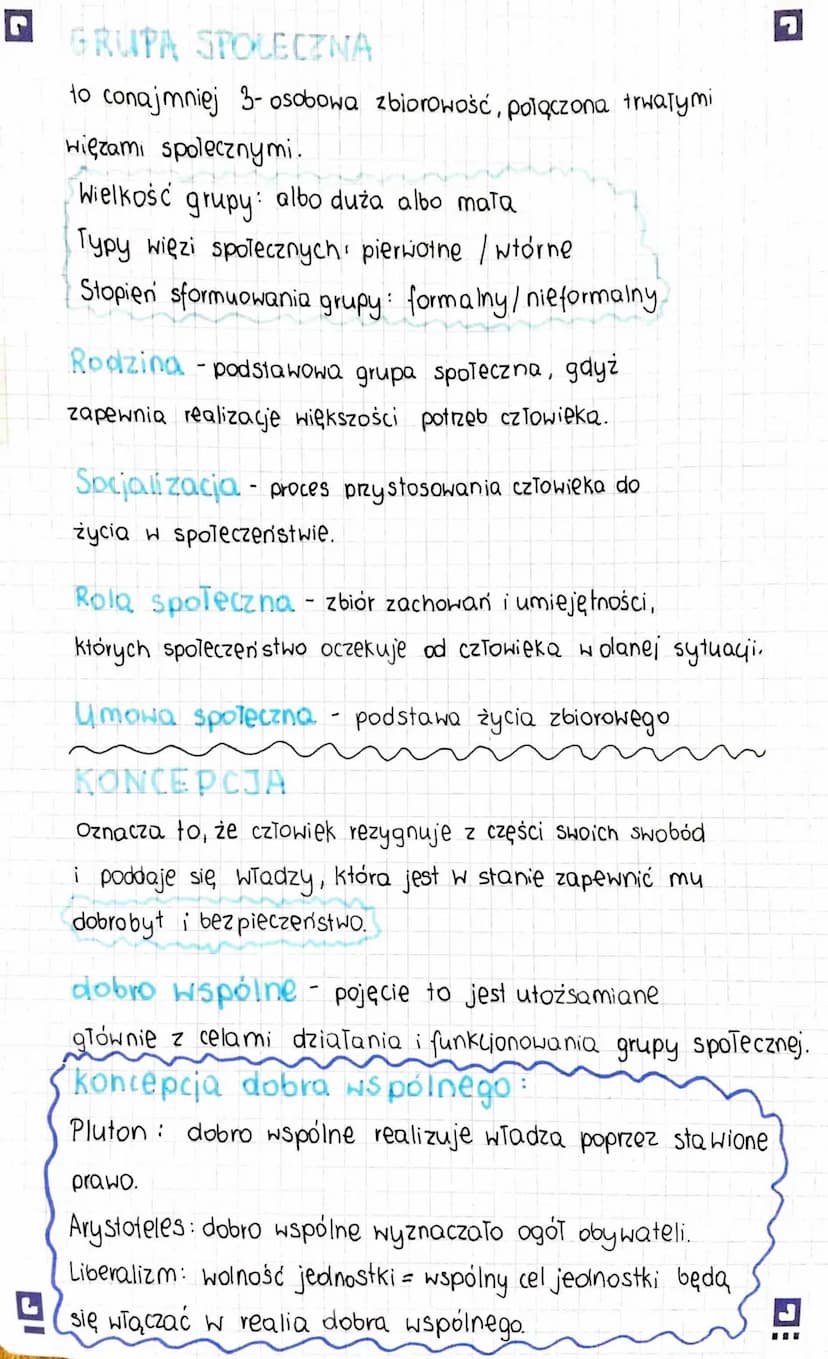 GRUPA SPOŁECZNA
to conajmniej 3-osobowa zbiorowość, połączona trwałymi
więzami społecznymi.
Wielkość grupy: albo duża albo mała
Typy więzi społecznych: pierwotne / wtórne
Stopień sformuowania grupy: formalny/nieformalny
Rodzina - podstawowa grupa społeczna, gdyż
zapewnia realizację większości potrzeb człowieka.
Socjalizacja - proces przystosowania człowieka do
życia w społeczeństwie.
Rola społeczna - zbiór zachowań i umiejętności,
których społeczeństwo oczekuje od człowieka w danej sytuacji.
Umowa społeczna - podstawa życia zbiorowego
KONCEPCJA
Oznacza to, że człowiek rezygnuje z części swoich swobód
i poddaje się władzy, która jest w stanie zapewnić mu
dobrobyt i bezpieczeństwo.
dobro wspólne - pojęcie to jest utożsamiane
głównie z celami działania i funkcjonowania grupy społecznej.
koncepcja dobra wspólnego:
Pluton: dobro wspólne realizuje władza poprzez stawione
prawo.
Arystoteles: dobro wspólne wyznaczało ogół obywateli.
Liberalizm: wolność jednostki = wspólny cel jednostki będą
się włączać w realia dobra wspólnego.